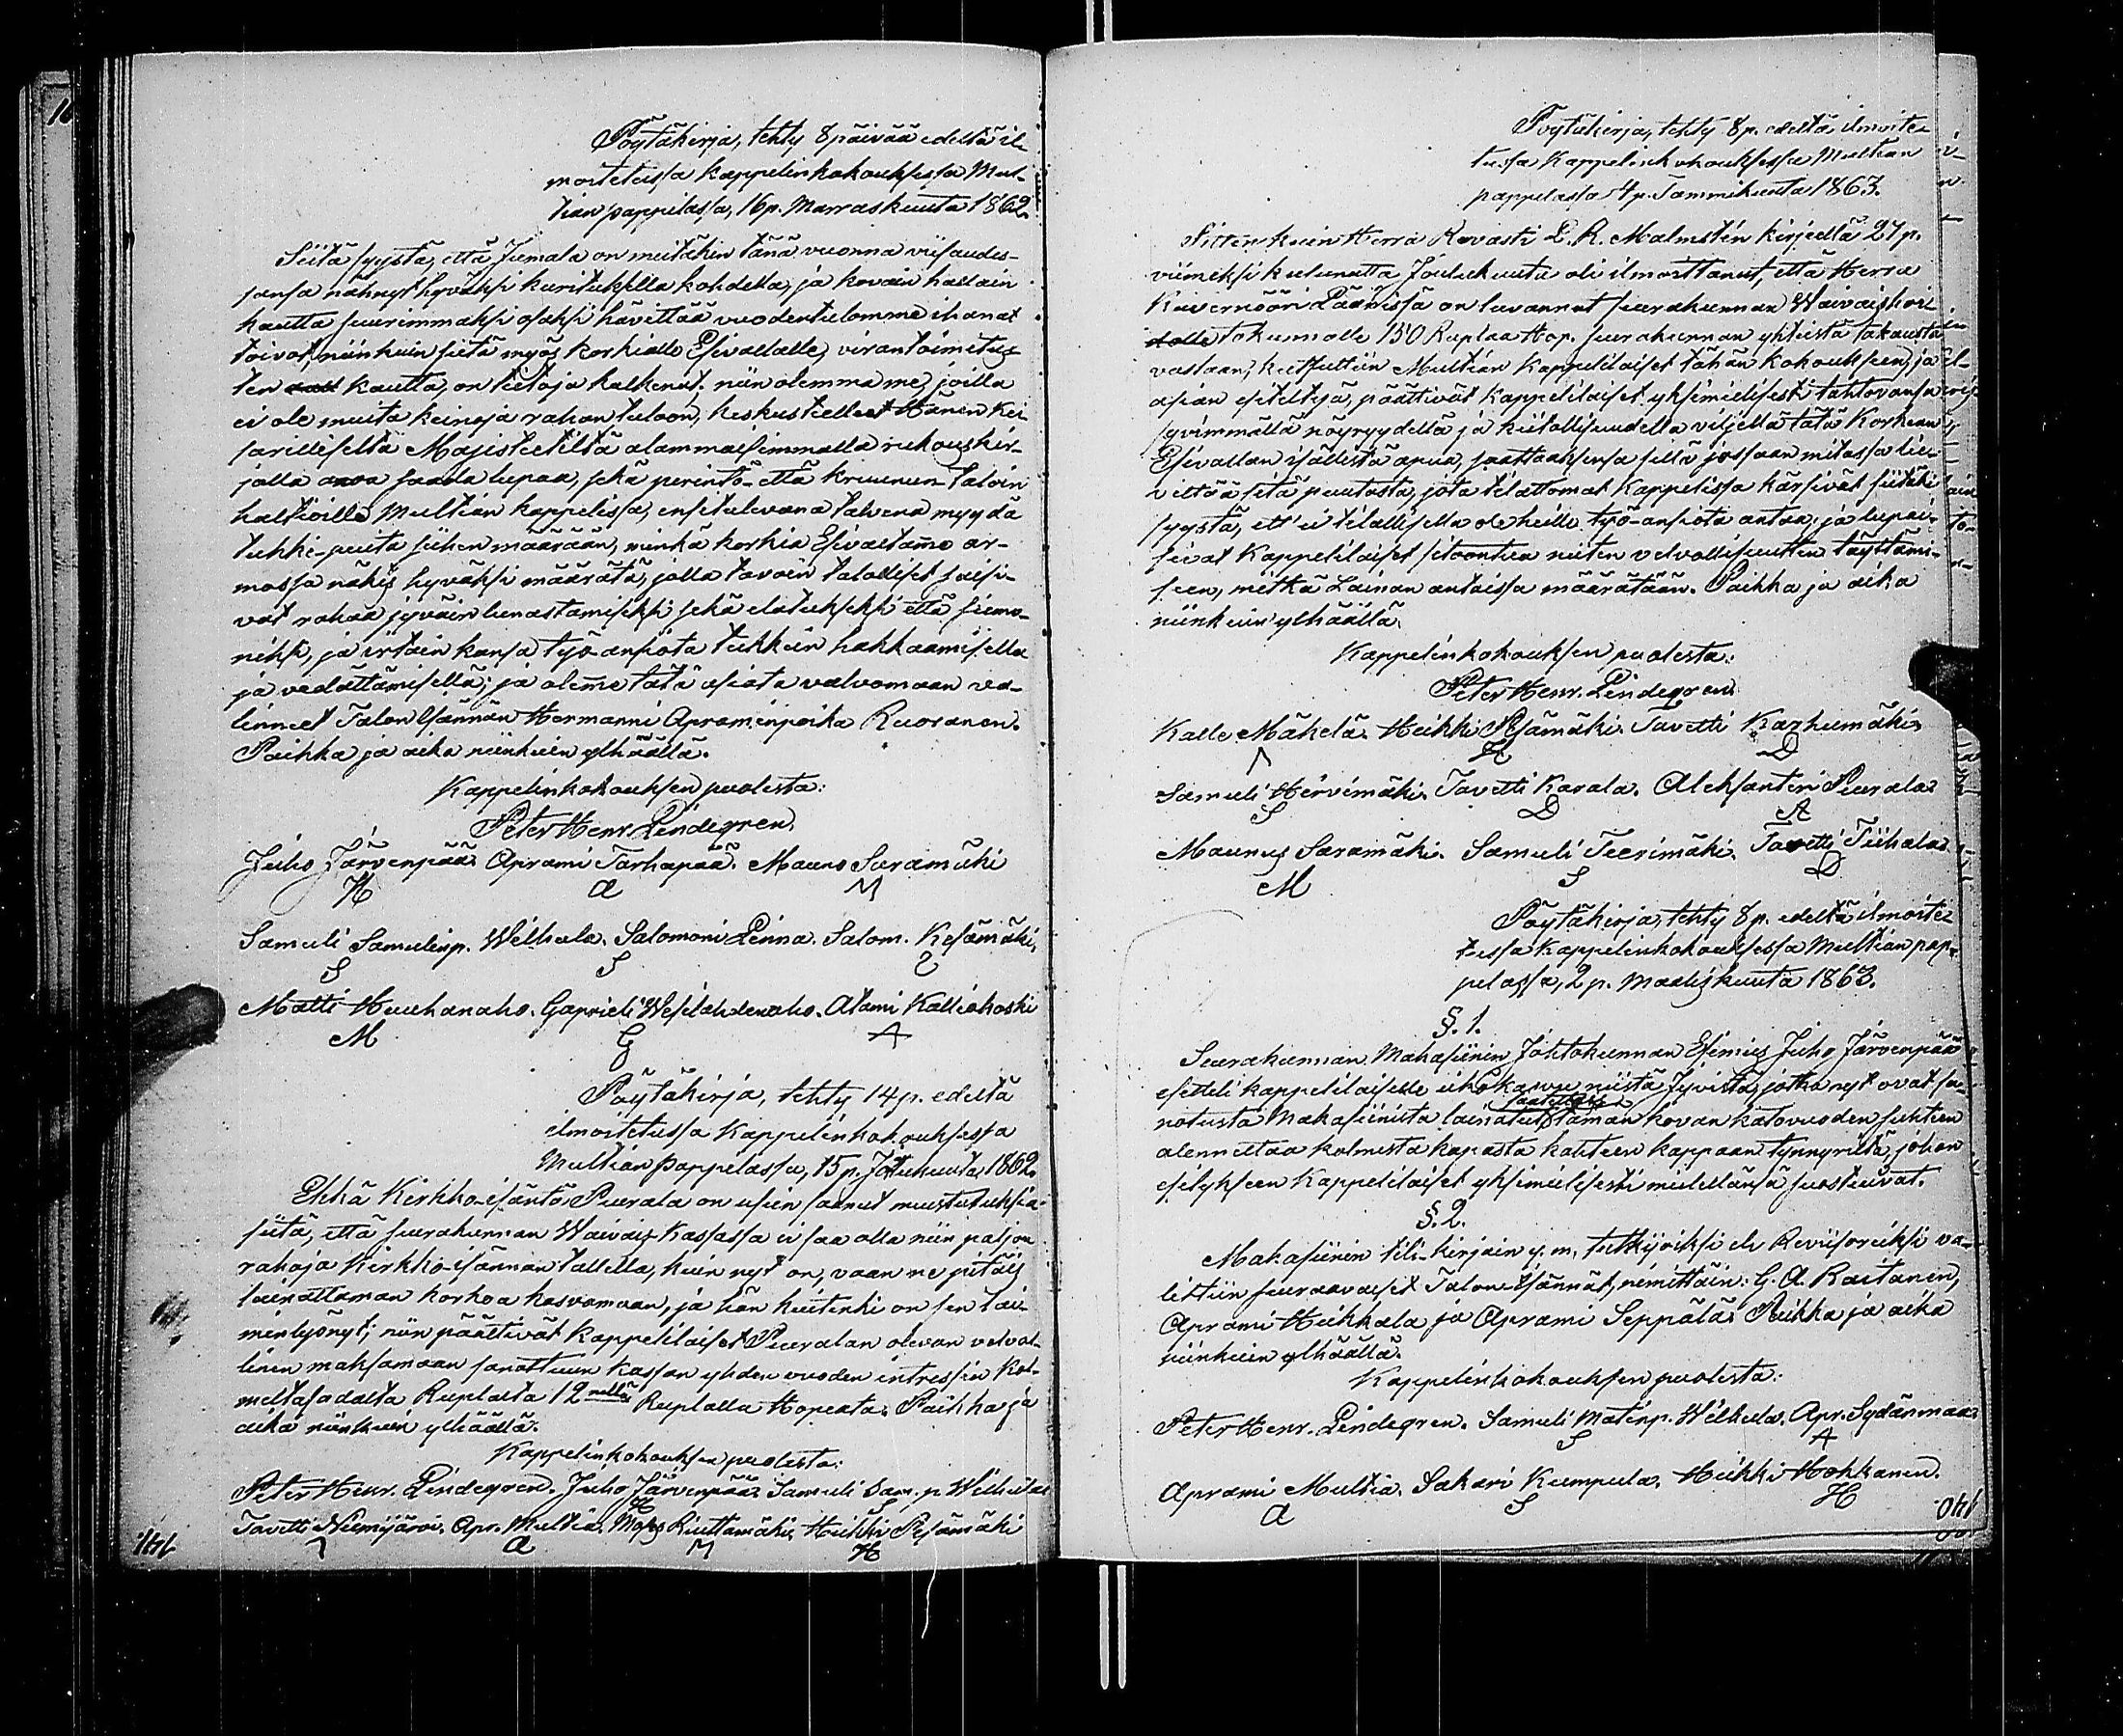 Pöytäkirja, tehty 8 päivää edeltä il-
moitetussa Kappelinkokouksessa Mul-
tian pappilassa, 16 p. Marraskuuta 1862.
Siitä syystä, että Jumala on meitäkin tänä vuonna viisaudes-
sansa nähnyt hyväksi kurituksella kohdella, ja kovain hallain
kautta suurimmaksi osaksi hävittää vuodentulomme ihanat
toivot, niinkuin siitä myös korkialle Esivallalle, virantoimitus-
ten kautta, on tietoja kulkenut. niin olemma me, joilla
ei ole muita keinoja rahan tuloon, keskustelleet Hänen Kei-
sarilliselta Majesteetiltä alammaisimmalla rukouskir-
jalla anoa saada lupaa, sekä perintö- että kruunun-taloin
haltioille Multian kappelissa, ensitulevana talvena myydä
tukki-puita siihen määrään, minkä korkia Esivaltame ar-
mossa näkis hyväksi määrätä, jolla tavoin talolliset saisi-
vat rahaa jyväin lunastamiseksi sekä elatukseksi että sieme-
niksi, ja irtain kansa työ-ansiota tukkein hakkaamisella
ja vedättämisellä; ja oleme tätä asiata valvomaan va-
linneet Talon Isännän Hermanni Apraminpoika Ruoranen.
Paikka ja aika niinkuin ylhäällä.
Kappelinkokouksen puolesta:
Peter Henr. Lindegren.
Juho Järvenpää. Aprami Tarhapää. Mauno Saramäki
H a M
Samuli Samulinp. Wilhula. Salomoni Linna. Salom. Kesämäki.
S S
Matti Huuhanaho. Gaprieli Wesilahdenaho. Atami Kalliokoski
M G A
Pöytäkirja, tehty 14 p. edeltä
ilmoitetussa Kappelinkokouksessa
Multian pappilassa, 15 p. Joulukuuta 1862.
Ehkä Kirkko-isäntä Peurala on usein saanut muistutuksia
siitä, että seurakunnan Waivais-Kassassa ei saa olla niin paljon
rahoja Kirkko-isännän tallella, kuin nyt on, vaan ne pitäis
lainattaman korkoa kasvamaan, ja hän kuitenki on sen lai-
minlyönyt; niin päättivät Kappelilaiset Peuralan olevan velvol-
linen maksamaan sanottuun kassan yhden vuoden intressin kol-
meltasadalta Ruplalta 12 nella Ruplalla Hopeata. Paikka ja
aika niinkuin ylhäällä.
Kappelinkokouksen puolesta:
Peter Henr. Lindegren. Juho Järvenpää. Samuli Sam. p. Wilhula
H S
Tavetti Niemijärvi. Apr. Multia. Riuttamäki. Heikki Pesämäki
a M H
Pöytäkirja, tehty 8 p. edeltä ilmoite-
tussa Kappelinkokouksessa Multian
pappilassa 4 p. Tammikuuta 1863.
Sitten kuin Herra Rovasti L. R. Malmstén kirjeellä 27 p.
viimeksi kulunutta Joulukuuta oli ilmoittanut, että Herra
Kuvernööri Läänissä on luvannut seurakunnan Waivaishoi-
tokunnalle 150 Ruplaa Hop. seurakunnan yhteistä takausta
vastaan, kutsuttiin Multian Kappelilaiset tähän kokoukseen, ja
asian esiteltyä, päättivät Kappelilaiset yksimielisesti tahtovansa
syvimmällä nöyryydellä ja kiitollisuudella viljellä tätä Korkean
Esivallan isällistä apua, saattaaksensa sillä jossaan mitassa lie-
viittää sitä puutosta, jota tilattomat Kappelissa kärsivät siitäki
syystä, ett'ei tilallisella ole heille työ-ansiota antaa; ja lupai-
sivat Kappelilaiset sitoontua niiten velvollisuutten täyttämi-
seen, mitkä Lainan antaissa määrätään. Paikka ja aika
niinkuin ylhäällä.
Kappelinkokouksen puolesta:
Peter Henr. Lindegren
Kalle Mäkelä. Heikki Pesämäki. Tavetti Karhumäki.
H D
Samuli Hirvimäki. Tavetti Karala. Aleksanteri Peurala.
S D A
Maunus Saramäki. Samuli Teerimäki. Tavetti Tiihala
M S D
Pöytäkirja, tehty 8 p. edeltä ilmoite-
tussa Kappelinkokouksessa Multian pap-
pilassa, 2 p. Maaliskuuta 1863.
§. 1.
Seurakunnan Makasiinin Johtokunnan Esimies Juho Järvenpää
esitteli kappelilaisille niistä Jyvistä, jotka nyt ovat sa-
notusta Makasiinista lainatut tämän kovan katovuoden suhteen
alennettaa kolmesta kapasta kahteen kappaan tynnyriltä, johon
esitykseen Kappelilaiset yksimielisesti mielellänsä suostuivat.
§. 2.
Makasiinin tili-kirjain y. m. tutkijoiksi eli Reviisoriiksi va-
littiin seuraavaiset Talon-Isännät, nimittäin: G. A. Raitanen,
Aprami Heikkala ja Aprami Seppälä. Paikka ja aika
niinkuin ylhäällä.
Kappelinkokouksen puolesta:
Peter Henr. Lindegren. Samuli Matinp. Wilhula. Apr. Sydänmaa
S A
Aprami Multia. Sakari Kumpula. Heikki Hokkanen.
a S H
140